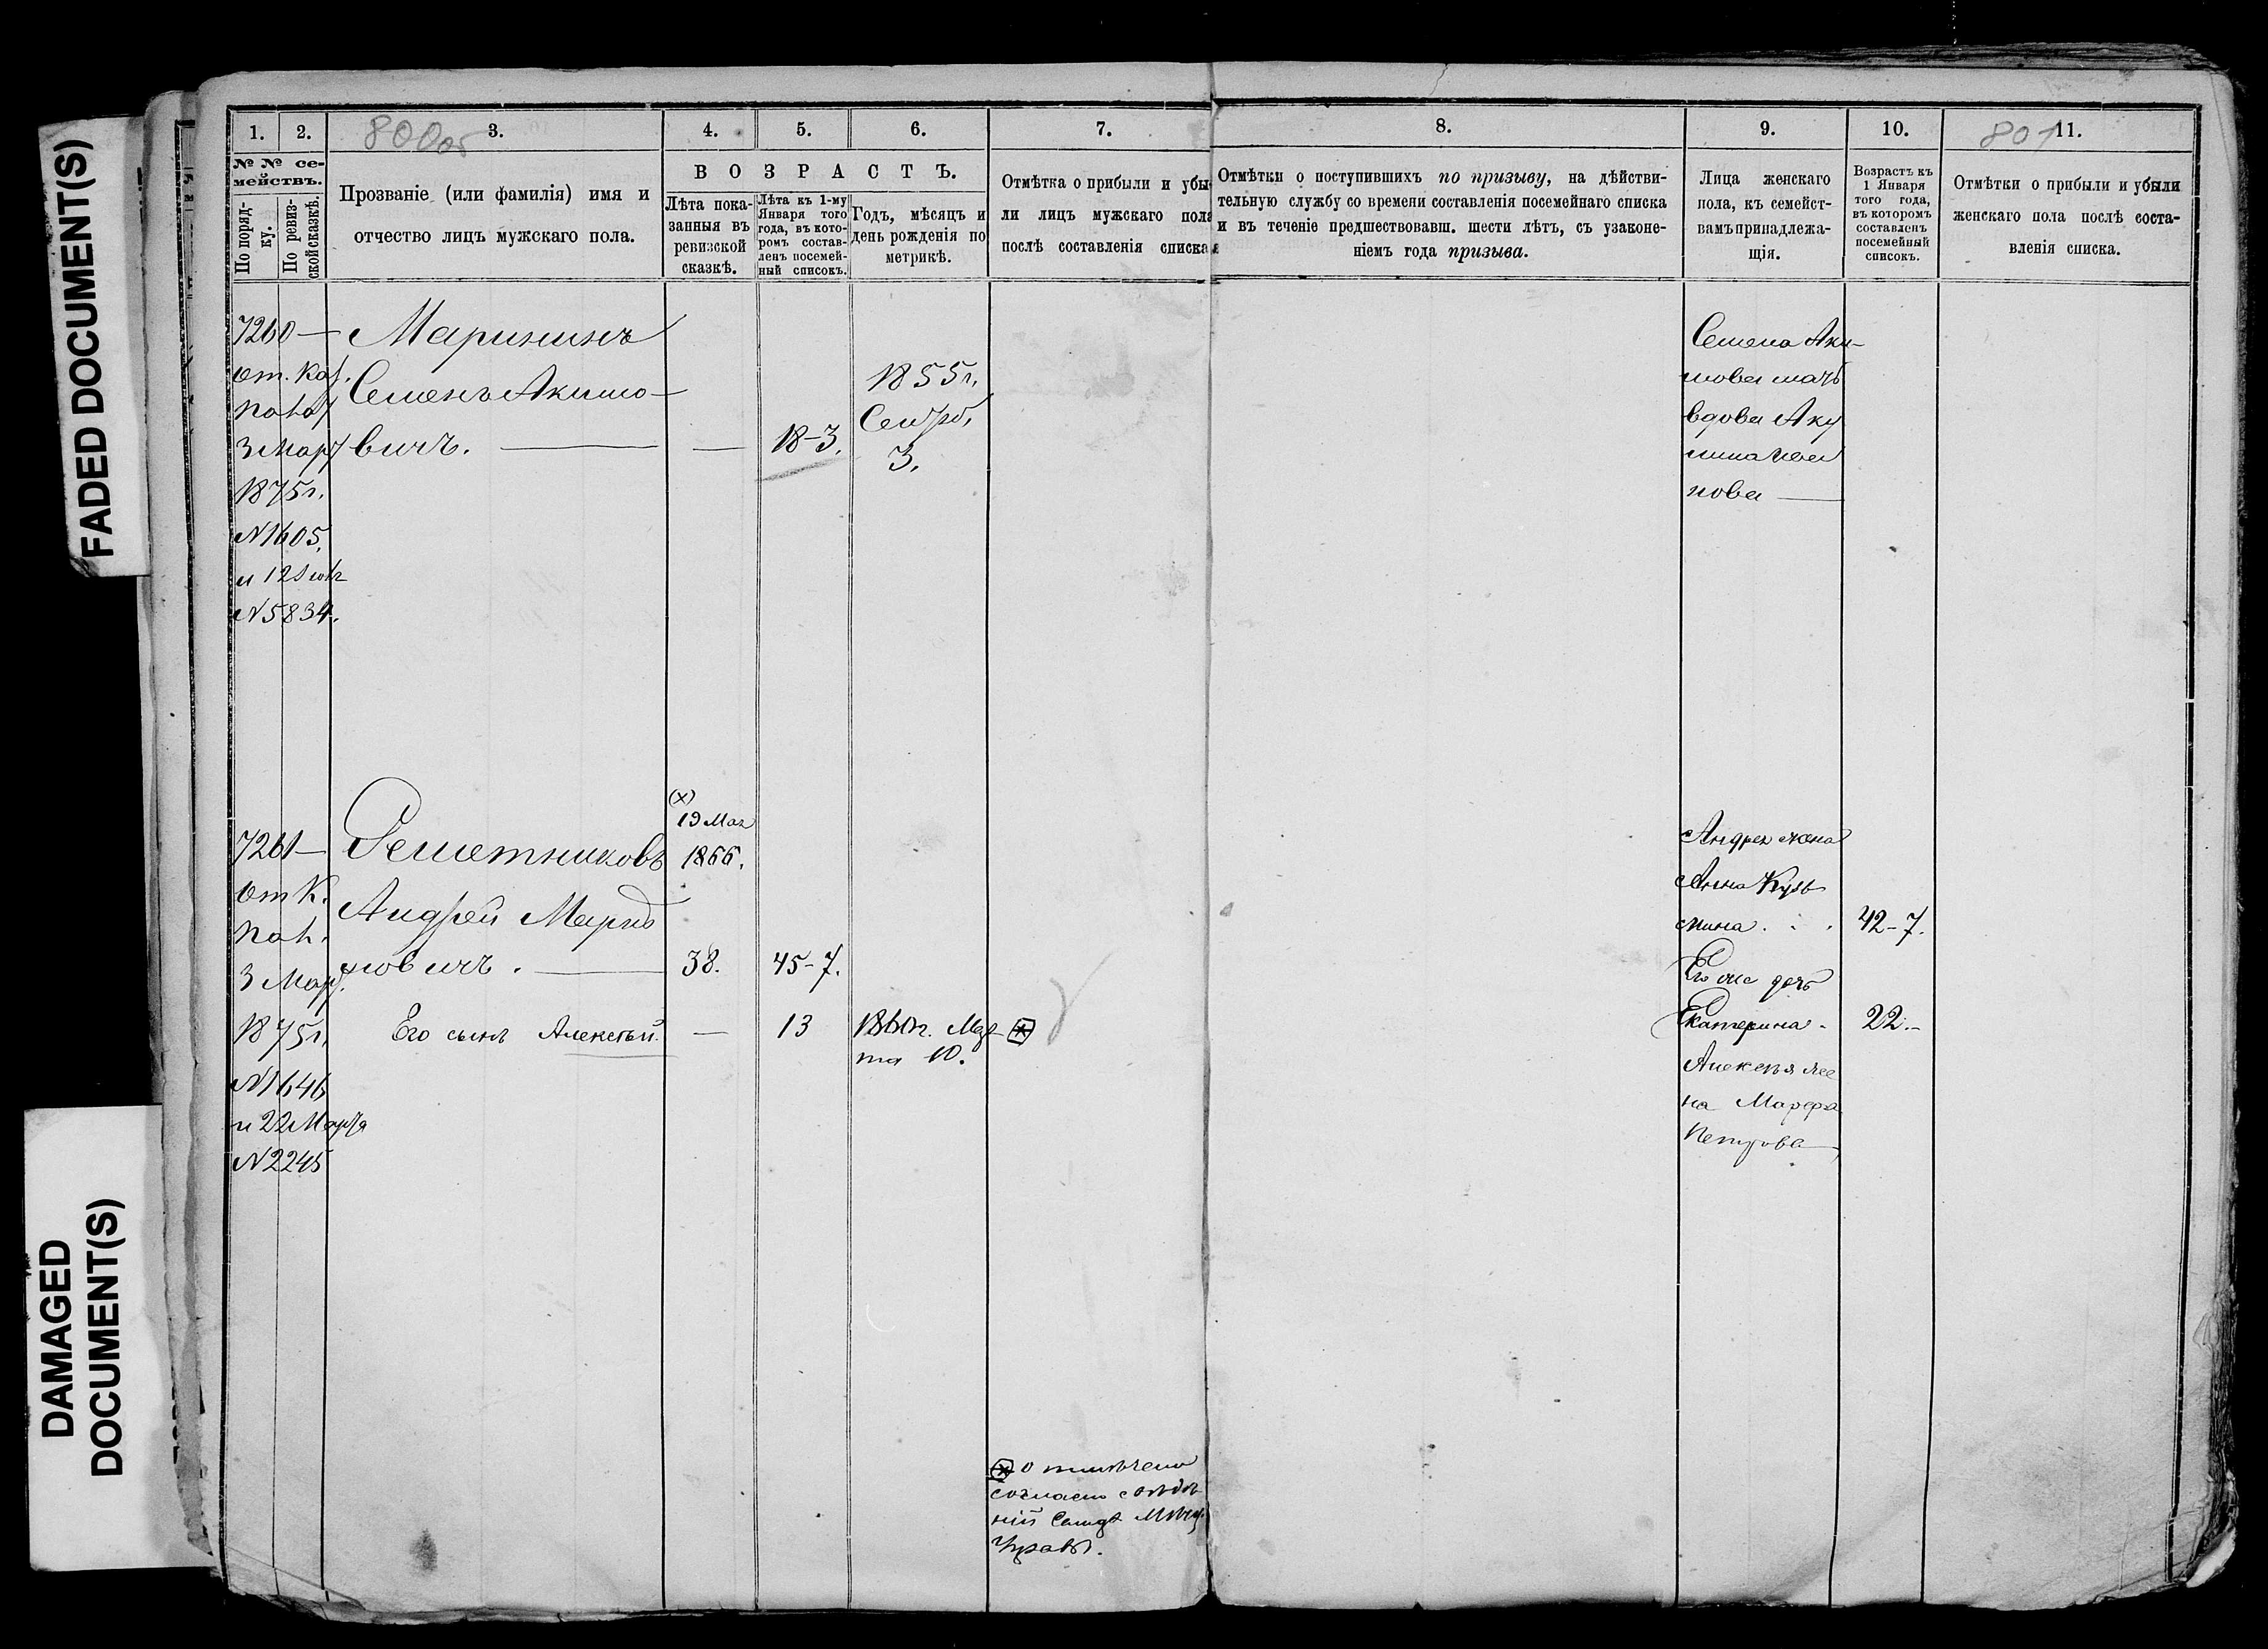 FADED DOCUMENT(S)
DAMAGED
DOCUMENT(S)
1.
2.
3.
4.
5.
6.
7.
8.
9.
10.
11.
800об
801
№ № се-
мействъ.
По поряд-
ку.
По ревиз-
ской сказкѣ.
Прозваніе (или фамилія) имя и
отчество лицъ мужскаго пола.
ВОЗРАСТЪ.
Лѣта пока-
занныя въ
ревизской
сказкѣ.
Лѣта къ 1-му
Января того
года, въ кото-
ромъ состав-
ленъ посемей-
ный списокъ.
Годъ, мѣсяцъ и
день рожденія по
метрикѣ.
Отмѣтка о прибыли и убы-
ли лицъ мужскаго пола
послѣ составленія списка
Отмѣтки о поступившихъ по призыву, на дѣйстви-
тельную службу со времени составленія посемейнаго списка
и въ теченіе предшествовавш. шести лѣтъ, съ узаконе-
ніемъ года призыва.
Лица женскаго
пола, къ семейст-
вамъ принадлежа-
щія.
Возрастъ къ
1 Января
того года,
въ которомъ
составленъ
посемейный
списокъ.
Отмѣтки о прибыли и убыли
женскаго пола послѣ соста-
вленія списка.
7260 —
От. Каз.
Пал.
3 Март
1875 г.
№ 1605.
и 12
№ 5834.
Марининъ
Семенъ Акимо-
вичъ. —
—
18-3.
1855 г.
Сентб.
3.
Семена Аки-
мова мать
вдова Аку
лина Ива
нова —
7261 —
От К.
Пал.
3 Мар.
1875 г.
№ 1646
и 22 Марта
№ 2245
Решетниковъ
Андрей Марко
новичъ. —
Его сынъ Алексѣй.
(х)
19 Мая
1866.
38.
45-7.
—
13
1860 г. Мар-
та 10.
Андрея жена
Анна Кузь
мина.
42-7.
Его же дочь
Екатерина.
22.-
Алексѣя же
на Марфа
Петрова
о тмѣчено
согласно свѣдѣ
ній Самар Мѣщ.
Управы.